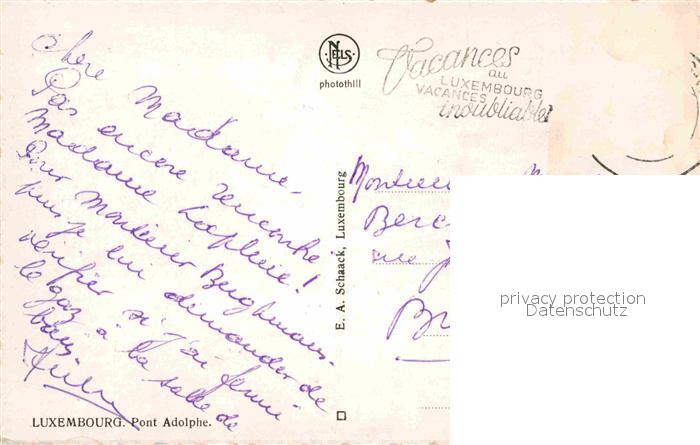 Chère Madame.
Pas encore rencontré
Madame Lapleue!
Pour Monsieur Berghmans.
puis-je lui demander de
vérifier si j'ai fermé
le gaz à la salle de
bains
NELS
photothill
Vacances
au
LUXEMBOURG
VACANCES
inoubliables
E. A. Schaack, Luxembourg
Monsieur
Berc
rue J
Br
LUXEMBOURG. Pont Adolphe.
privacy protection
Datenschutz